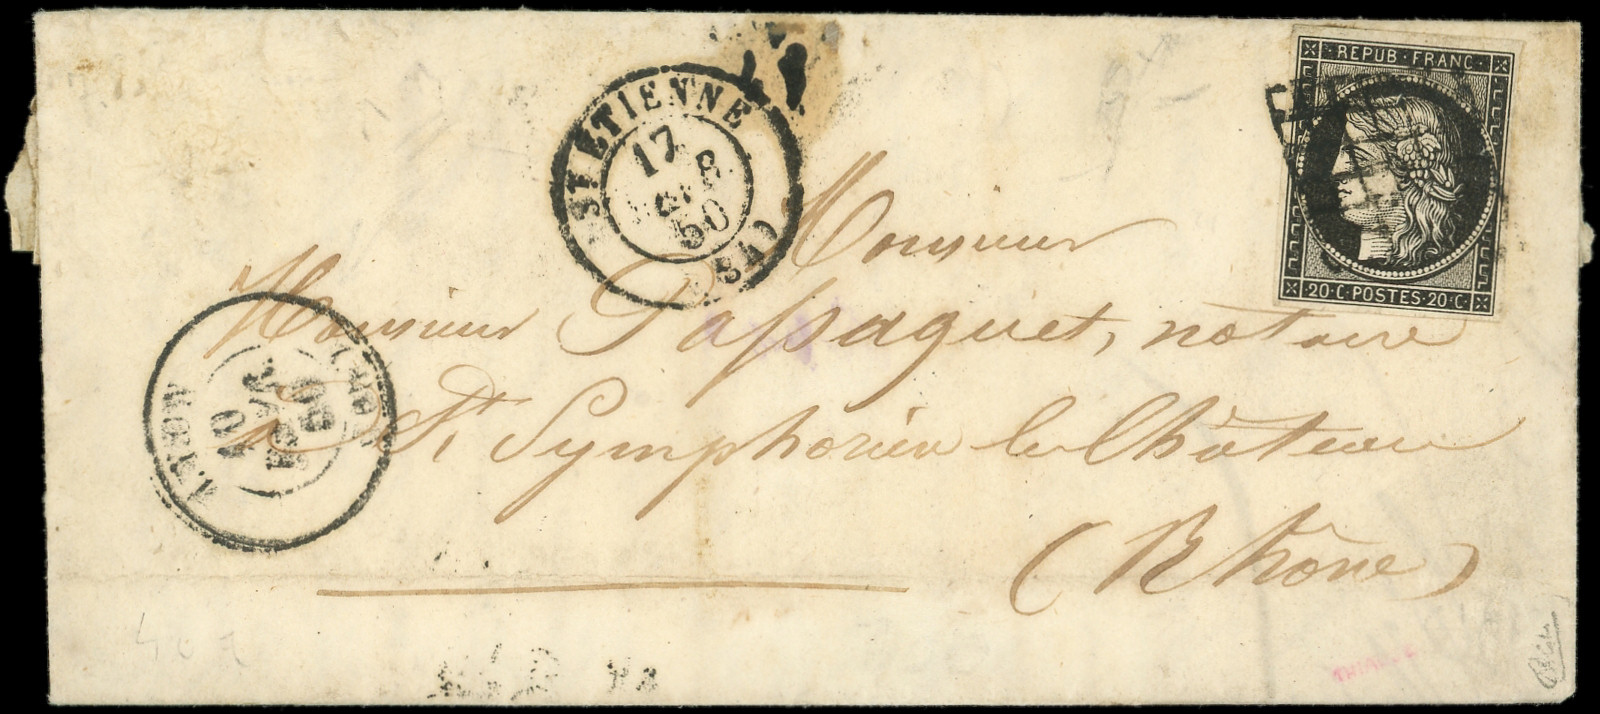 REPUB · FRANC
20 · C · POSTES · 20 · C
ST ETIENNE
17
50
Monsieur
Monsieur Passaquet, notaire
à St Symphorien le Château
(Rhône)
LYON
50